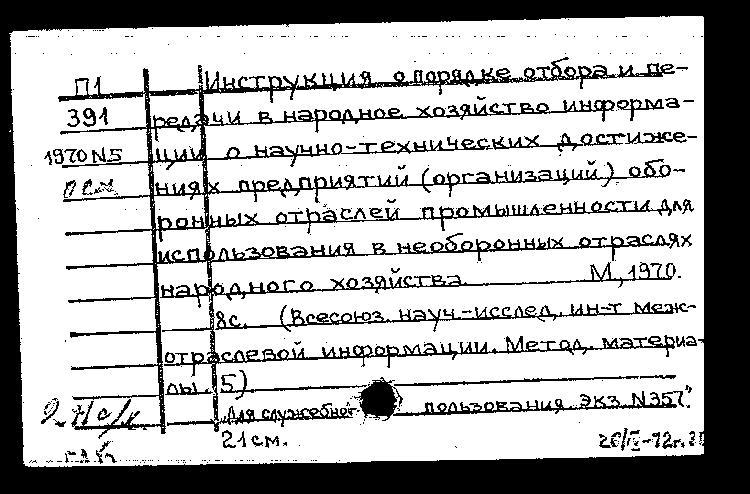 П1 Инструкция о порядке отбора и пе-
391 редачи в народное хозяйство информа-
1970 N5 ции о научно-технических достиже-
ниях предприятий (организаций) обо-
ронных отраслей промышленности для
использования в необоронных отраслях
народного хозяйства. М., 1970.
8с. (Всесоюз. науч.-исслед. ин-т меж-
отраслевой информации. Метод. материа-
лы. 5).
„Для служебног пользования. Экз. N357".
21 см.